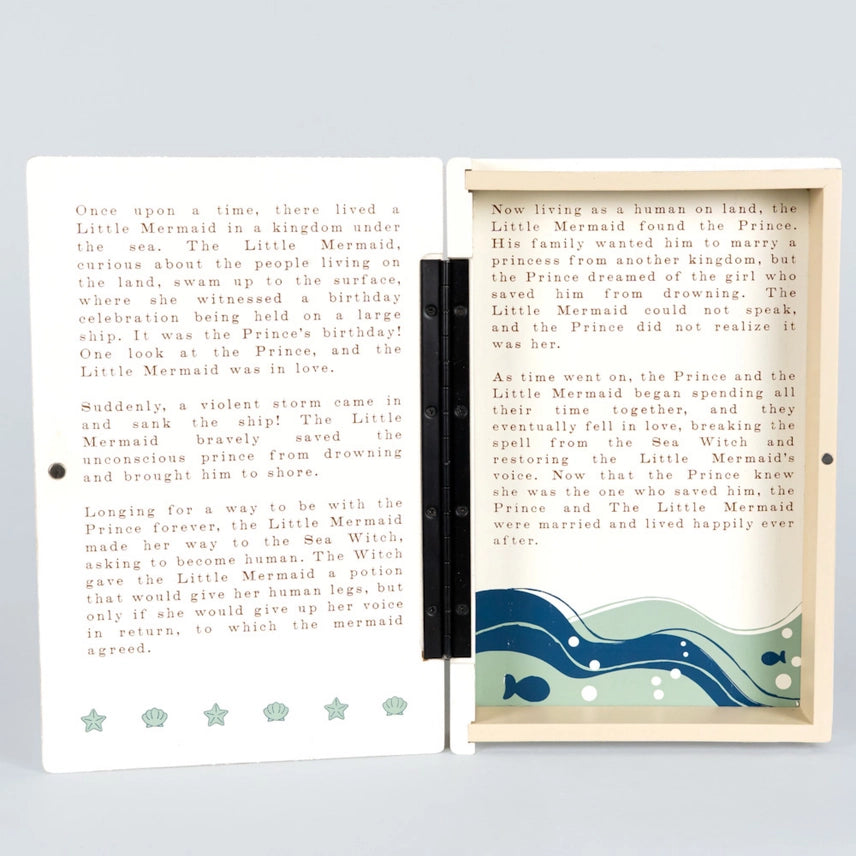 Once upon a time, there lived a
Little Mermaid in a kingdom under
the sea. The Little Mermaid,
curious about the people living on
the land, swam up to the surface,
where she witnessed a birthday
celebration being held on a large
ship. It was the Prince's birthday!
One look at the Prince, and the
Little Mermaid was in love.
Suddenly, a violent storm came in
and sank the ship! The Little
Mermaid bravely saved the
unconscious prince from drowning
and brought him to shore.
Longing for a way to be with the
Prince forever, the Little Mermaid
made her way to the Sea Witch,
asking to become human. The Witch
gave the Little Mermaid a potion
that would give her human legs, but
only if she would give up her voice
in return, to which the mermaid
agreed.
Now living as a human on land, the
Little Mermaid found the Prince.
His family wanted him to marry a
princess from another kingdom, but
the Prince dreamed of the girl who
saved him from drowning. The
Little Mermaid could not speak,
and the Prince did not realize it
was her.
As time went on, the Prince and the
Little Mermaid began spending all
their time together, and they
eventually fell in love, breaking the
spell from the Sea Witch and
restoring the Little Mermaid's
voice. Now that the Prince knew
she was the one who saved him, the
Prince and The Little Mermaid
were married and lived happily ever
after.